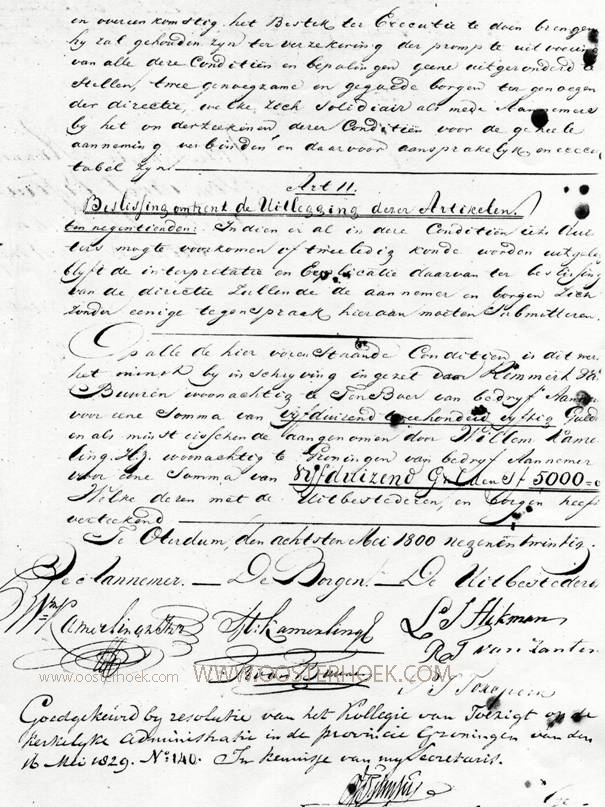 en overeenkomstig het Bestek ter Executie te doen brengen
hy zal gehouden zyn ter verzekering der prompte uitvoering
van alle deze Conditiën en bepalingen geene uitgezonderd te
stellen, twee genoegzame en gegoede borgen ten genoegen
der directie, welke zich solidiair als mede Aannemers
by het onderteekenen dezer Conditiën voor de geheele
aanneming verbinden en daarvoor aansprakelyk en execu
tabel zyn.
Art 11.
Beslissing omtrent de Uitlegging dezer Artikelen.
ten negentienden: Indien er al in deze Conditiën iets
ters mogte voorkomen of tweeledig konde worden uitgeleg
blyft de interpretatie en Explicatie daarvan ter beslissing
van de directie zullende de aannemer en borgen zich
zonder eenige tegenspraak hieraan moeten submitteren.
Op alle de hier voren Staande Conditien is dit werk
het minste by inschryving ingezet door Remmerk
Buuren woonachtig te Ten Boer van bedryf Aannemer
voor eene Somma van vyfduizend tweehonderd vyftig Guld
en als minst eisschende aangenomen door Willem Kamer
ling Hz. woonachtig te Groningen van bedryf Aannemer
voor eene Somma van vyfduizend Guldens f 5000 =
Welke dezen met de Uitbestederen, en borgen heeft
verteekend
Te Oterdum, den achtsten Mei 1800 negen en twintig.
De Aannemer. — De Borgen. — De Uitbesteders
Wm Kamerling H. Kamerling
R J van Zanten
www.oosterhoek.com WWW.OOSTERHOEK.COM
Goedgekeurd by resolutie van het Kollegie van Toezigt op de
kerkelyke administratie in de provincie Groningen van den
16 Mei 1829. No. 140. In kennisse van my Secretaris.